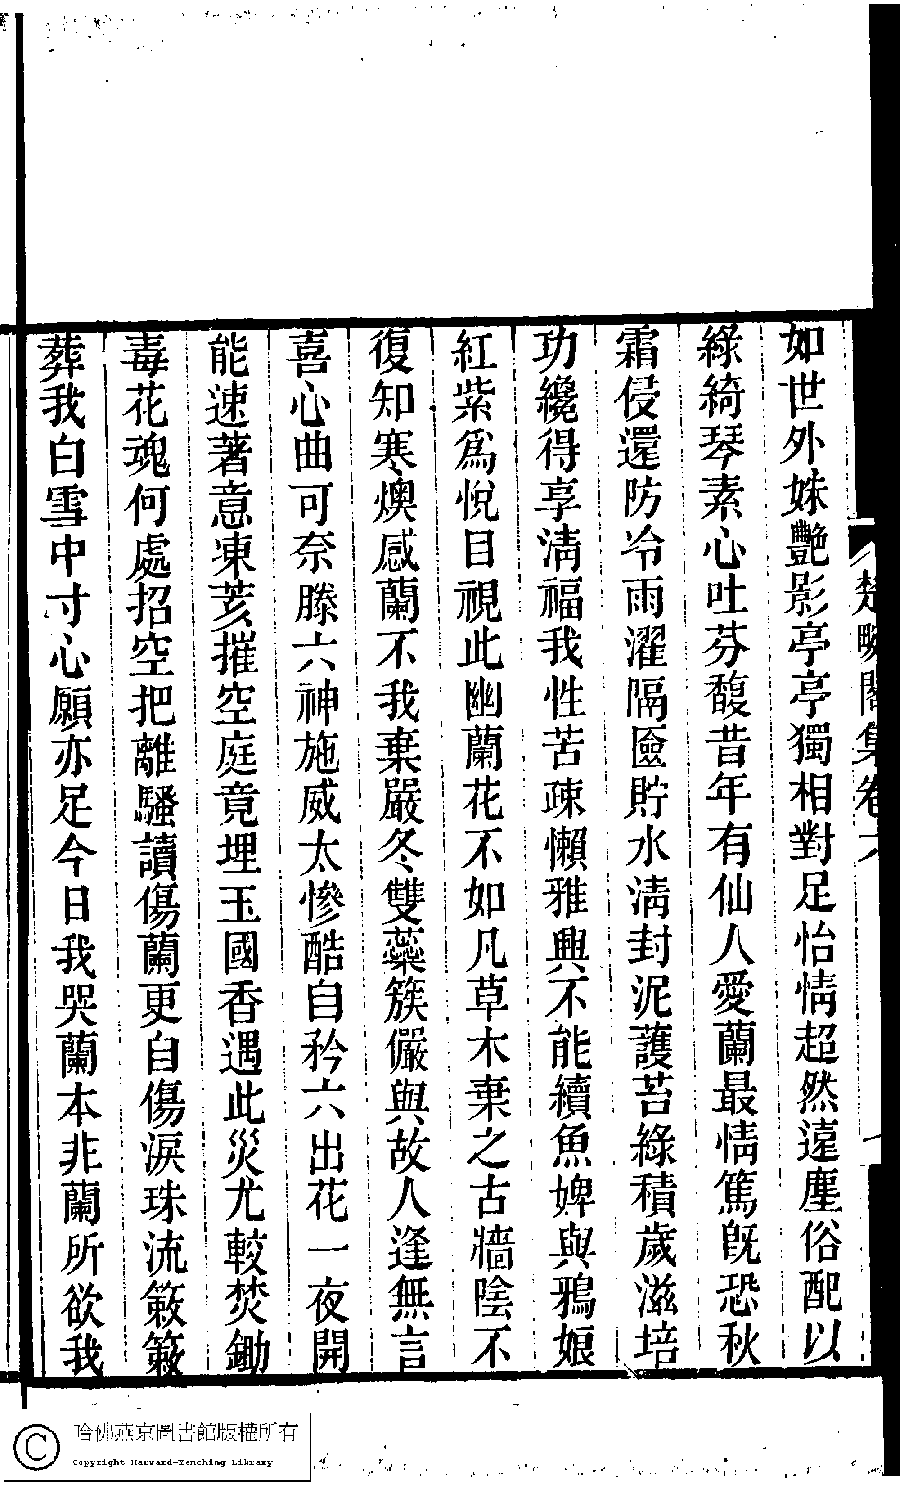 如世外姝艷影亭亭獨相對足怡情超然遠塵俗配以
綠綺琴素心吐芬馥昔年有仙人愛蘭最情篤旣恐秋
霜侵還防冷雨濯隔匳貯水淸封泥護苔綠積歲滋培
功纔得享淸福我性苦疎懶雅興不能續魚婢與鴉娘
紅紫爲悅目視此幽蘭花不如凡草木棄之古牆陰不
復知寒燠感蘭不我棄嚴冬雙蘂簇儼與故人逢無言
喜心曲可奈滕六神施威太慘酷自矜六出花一夜開
能速著意東荄摧空庭竟埋玉國香遇此災尤較焚鋤
毒花魂何處招空把離騷讀傷蘭更自傷淚珠流簌簌
葬我白雪中寸心願亦足今日我哭蘭本非蘭所欲我
楚畹閣集卷六
哈佛燕京圖書館版權所有
Copyright Harvard-Yenching Library